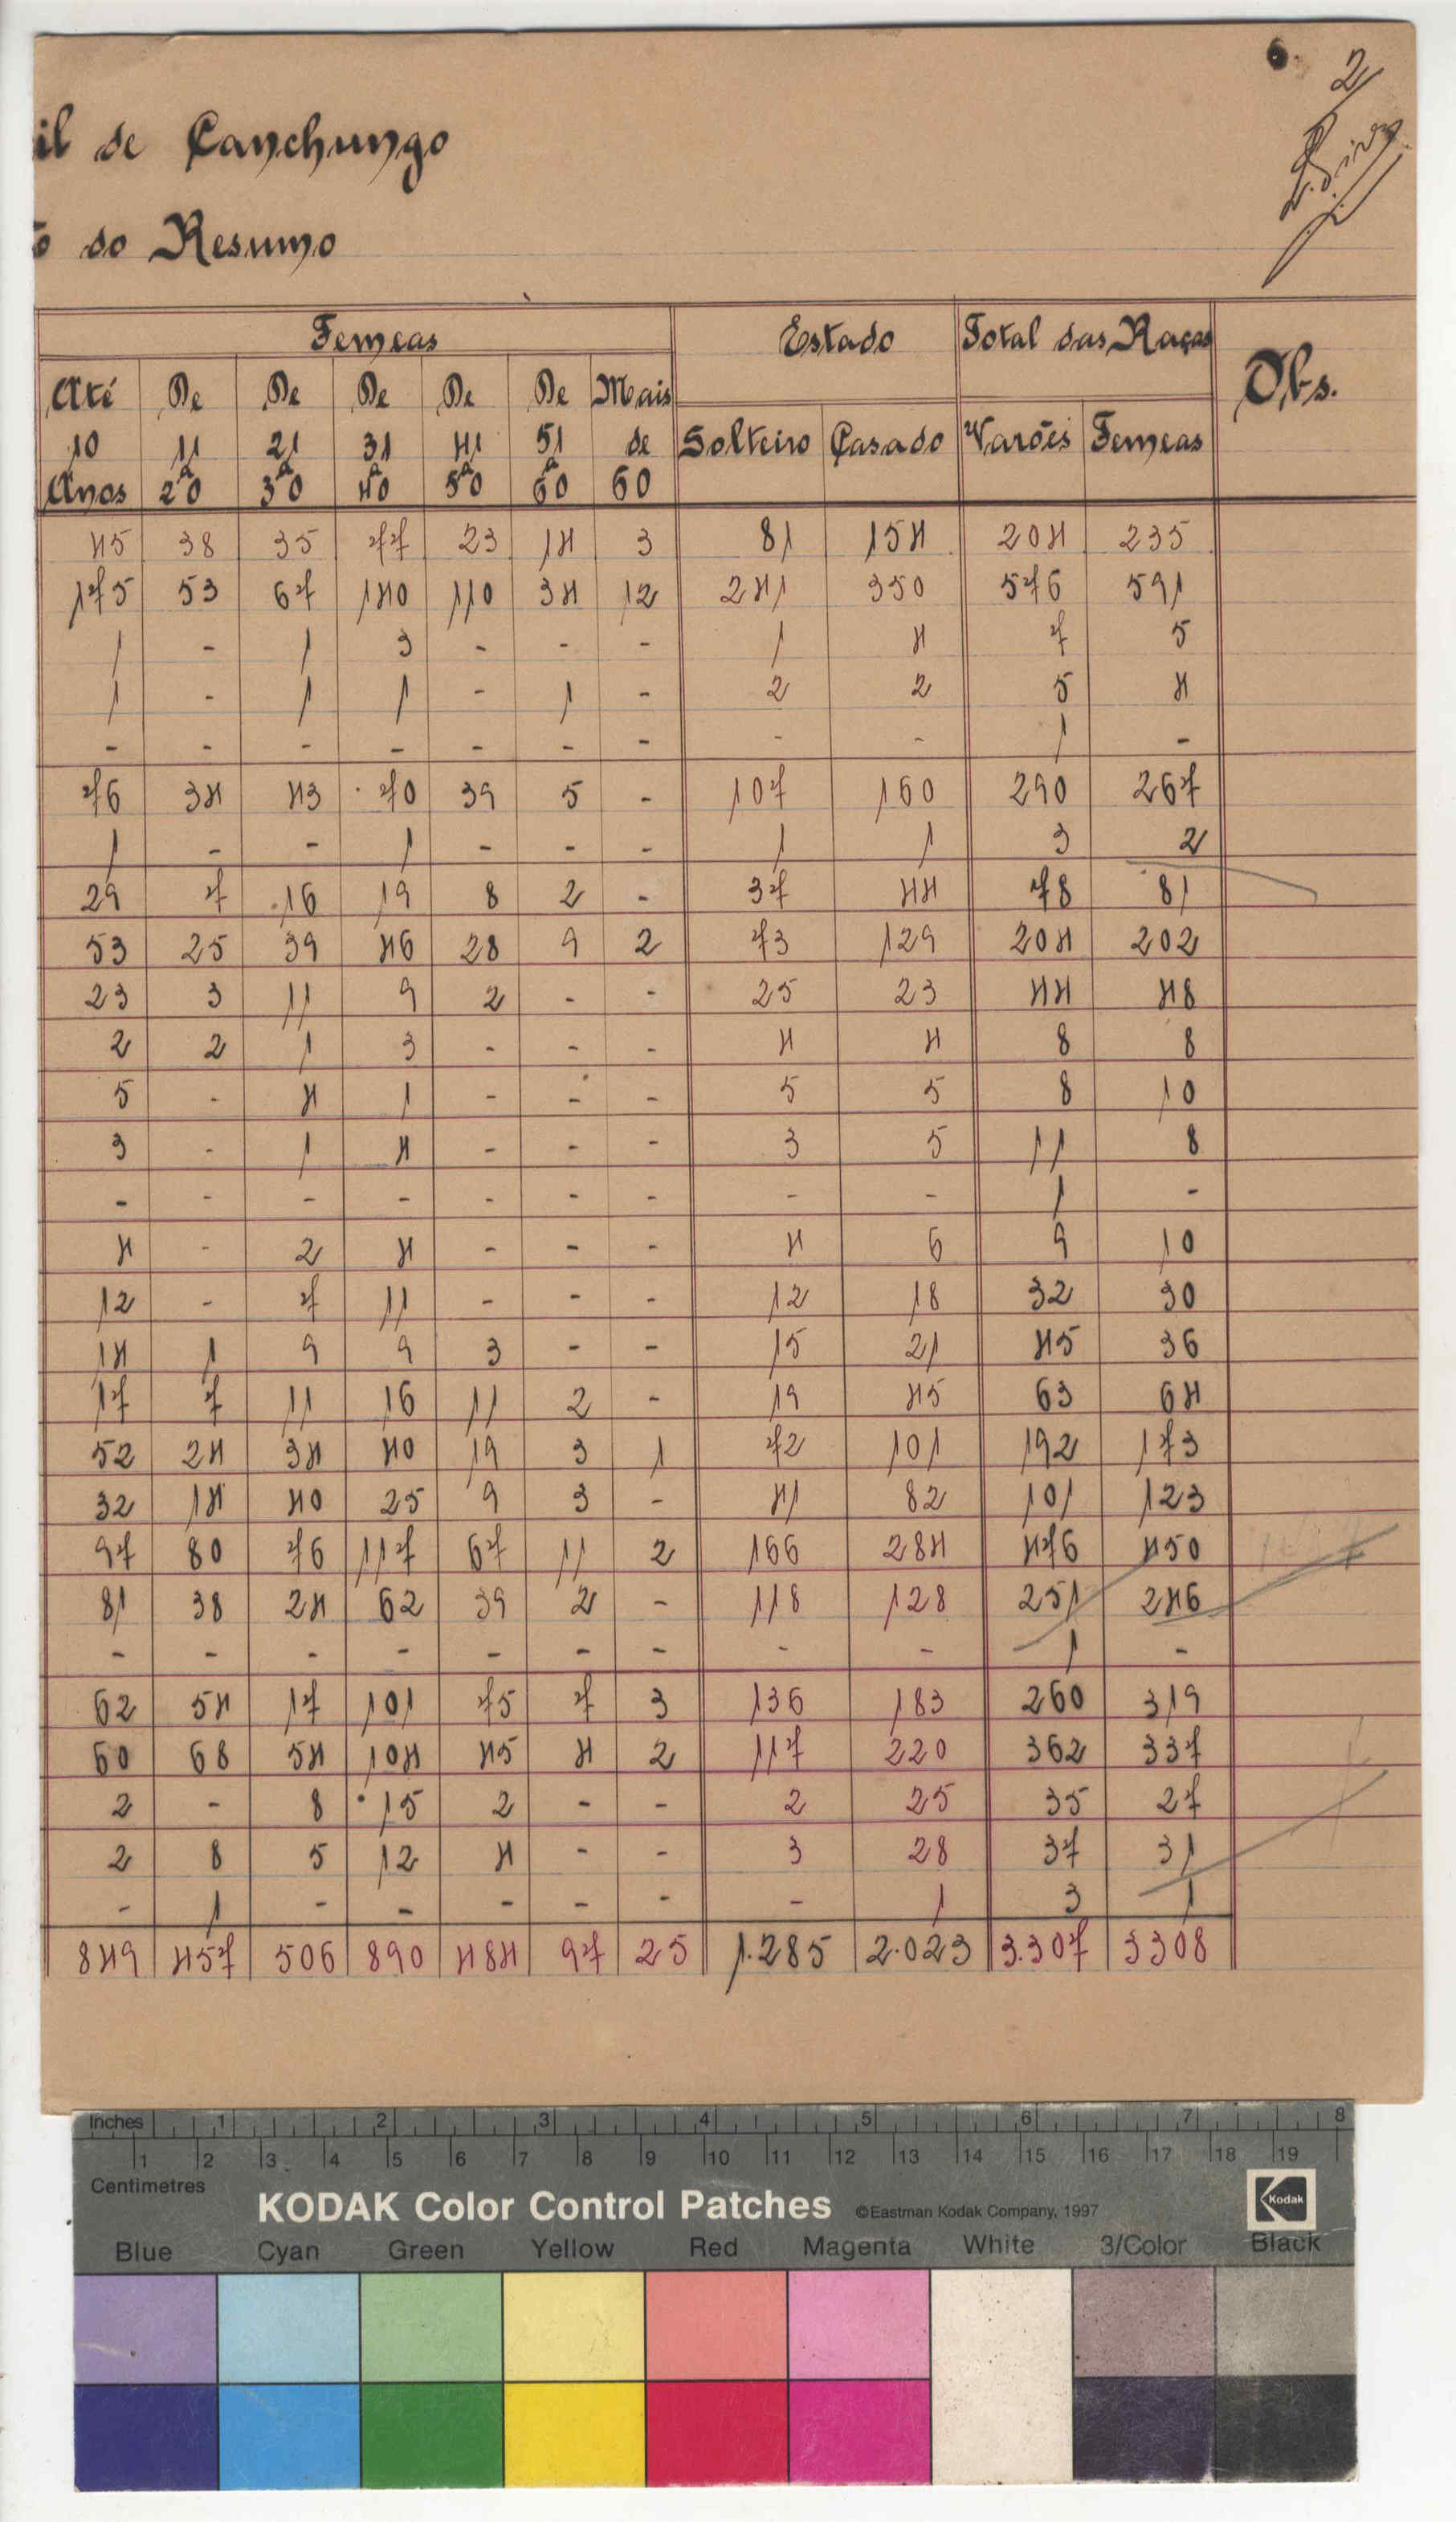 2
il de Canchungo
o do Resumo
Femeas Estado Total das Raças Obs.
Até 10 Anos De 11 a 20 De 21 a 30 De 31 a 40 De 41 a 50 De 51 a 60 Mais de 60 Solteiro Casado Varões Femeas
45 38 35 77 23 14 3 81 154 204 235
175 53 67 140 110 34 12 241 350 576 591
1 - 1 3 - - - 1 4 7 5
1 - 1 1 - 1 - 2 2 5 4
- - - - - - - - - 1 -
76 34 43 70 39 5 - 107 160 290 267
1 - - 1 - - - 1 1 3 2
29 7 16 19 8 2 - 37 44 78 81
53 25 39 46 28 9 2 73 129 204 202
23 3 11 9 2 - - 25 23 44 48
2 2 1 3 - - - 4 4 8 8
5 - 4 1 - - - 5 5 8 10
3 - 1 4 - - - 3 5 11 8
- - - - - - - - - 1 -
4 - 2 4 - - - 4 6 9 10
12 - 7 11 - - - 12 18 32 30
14 1 9 9 3 - - 15 21 45 36
17 7 11 16 11 2 - 19 45 63 64
52 24 34 40 19 3 1 72 101 192 173
32 14 40 25 9 3 - 41 82 101 123
97 80 76 117 67 11 2 166 284 476 450
81 38 24 62 39 2 - 118 128 251 246
- - - - - - - - - 1 -
62 54 17 101 75 7 3 136 183 260 319
60 68 54 104 45 4 2 117 220 362 337
2 - 8 15 2 - - 2 25 35 27
2 8 5 12 4 - - 3 28 37 31
- 1 - - - - - - 1 3 1
849 457 506 890 484 97 25 1.285 2.023 3.307 3308
Inches 1 2 3 4 5 6 7 8
1 2 3 4 5 6 7 8 9 10 11 12 13 14 15 16 17 18 19
Centimetres
KODAK Color Control Patches ©Eastman Kodak Company, 1997 Kodak
Blue Cyan Green Yellow Red Magenta White 3/Color Black